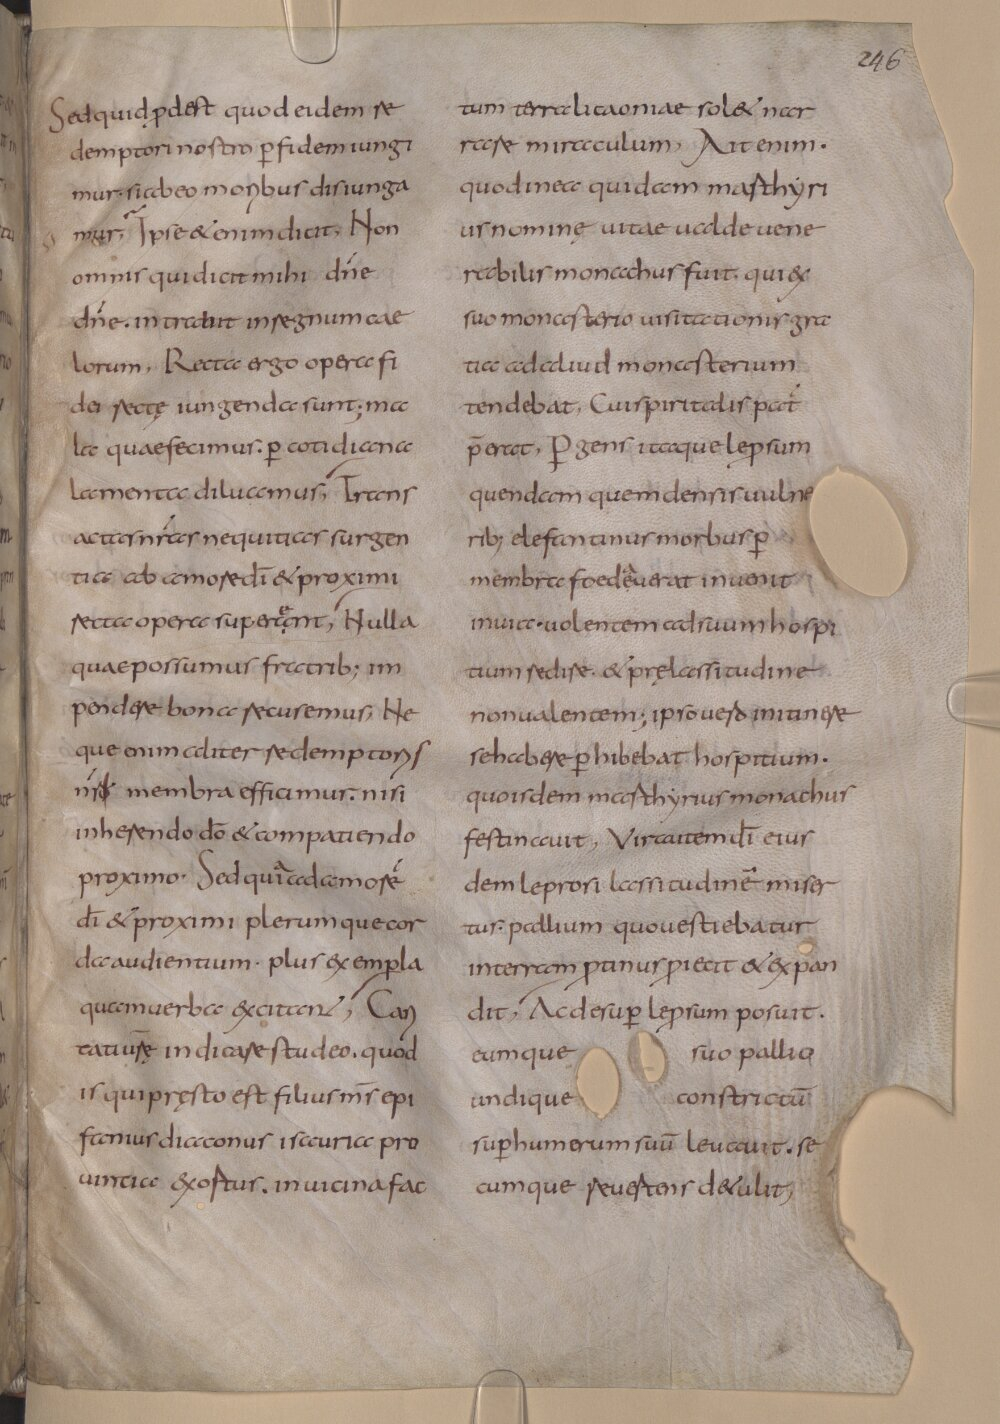 246
Sed quid ꝓdest quod eidem re
demptori nostro ꝑ fidem iungi
mur. si ab eo moribus disiunga
mur; Ipse & enim dicit, Non
omnis qui dicit mihi dn̄e
dn̄e. intrabit in regnum cae
lorum, Recta ergo opera fi
dei rectę iungenda sunt; ma
la quae fecimus. ꝑ cotidiana
lamenta diluamus, Trans
actas nr̄as nequitias surgen
tia ab amore dī & proximi
recta opera superent, Nulla
quae possumus fratrib; im
pendere bona recusemus, Ne
que enim aliter redemptoris
nr̄i membra efficimur. nisi
inherendo dō & compatiendo
proximo. Sed quia ad amorē
dī & proximi plerumque cor
da audientium. plus exempla
quam uerba excitant, Cari
tati ur̄ę indicare studeo. quod
is qui pręsto est filius mr̄s epi
fanius diaconus isauria pro
uintia exortus. in uicina fac
tum terra licaoniae sol& nar
rare miraculum, Ait enim.
quod in ea quidam marthyri
us nominę uitae ualde uene
rabilis monachus fuit. qui ex
suo monasterio uisitationis gra
tia ad aliud monasterium
tendebat, Cui spiritalis pat̄
p̄erat, Pergens itaque leprsum
quendam quem densis uulne
rib; elefantinus morbus ꝑ
membra foedauerat inuenit
in uia. uolentem ad suum hospi
tium redire. & pręlassitudine
non ualentem; ipso uero in itinere
se habere ꝑhibebat hospitium.
quo isdem marthyrius monachus
festinauit, Vir autem dī eius
dem leprosi lassitudinē miser
tus. pallium quo uestiebatur
in terram ꝓtinus ꝓiecit & expan
dit, Ac desuꝑ leprsum posuit.
eumque suo pallio
undique constrictū
suꝑ humerum suū leuauit. se
cumque reuertens d&ulit,